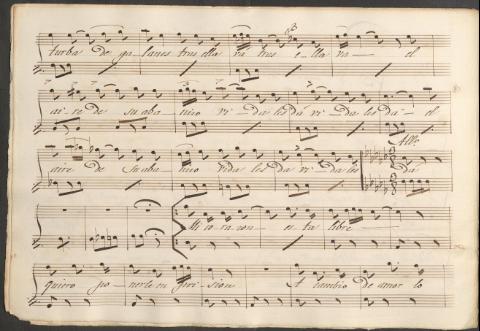 turba de galanes tras ella va tras e-lla va- el
ai-re de su aba nico vi-da les da vi-da les da- el
All.º
aire de su aba nico vida les da vi-da les da
Mi corazon- esta libre
quiero po-nerle en prision A cambio de amor lo